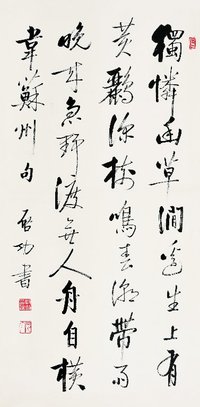 獨憐幽草澗邊生上有
黃鸝深樹鳴春潮帶雨
晚來急野渡無人舟自橫
韋蘇州句 啟功書